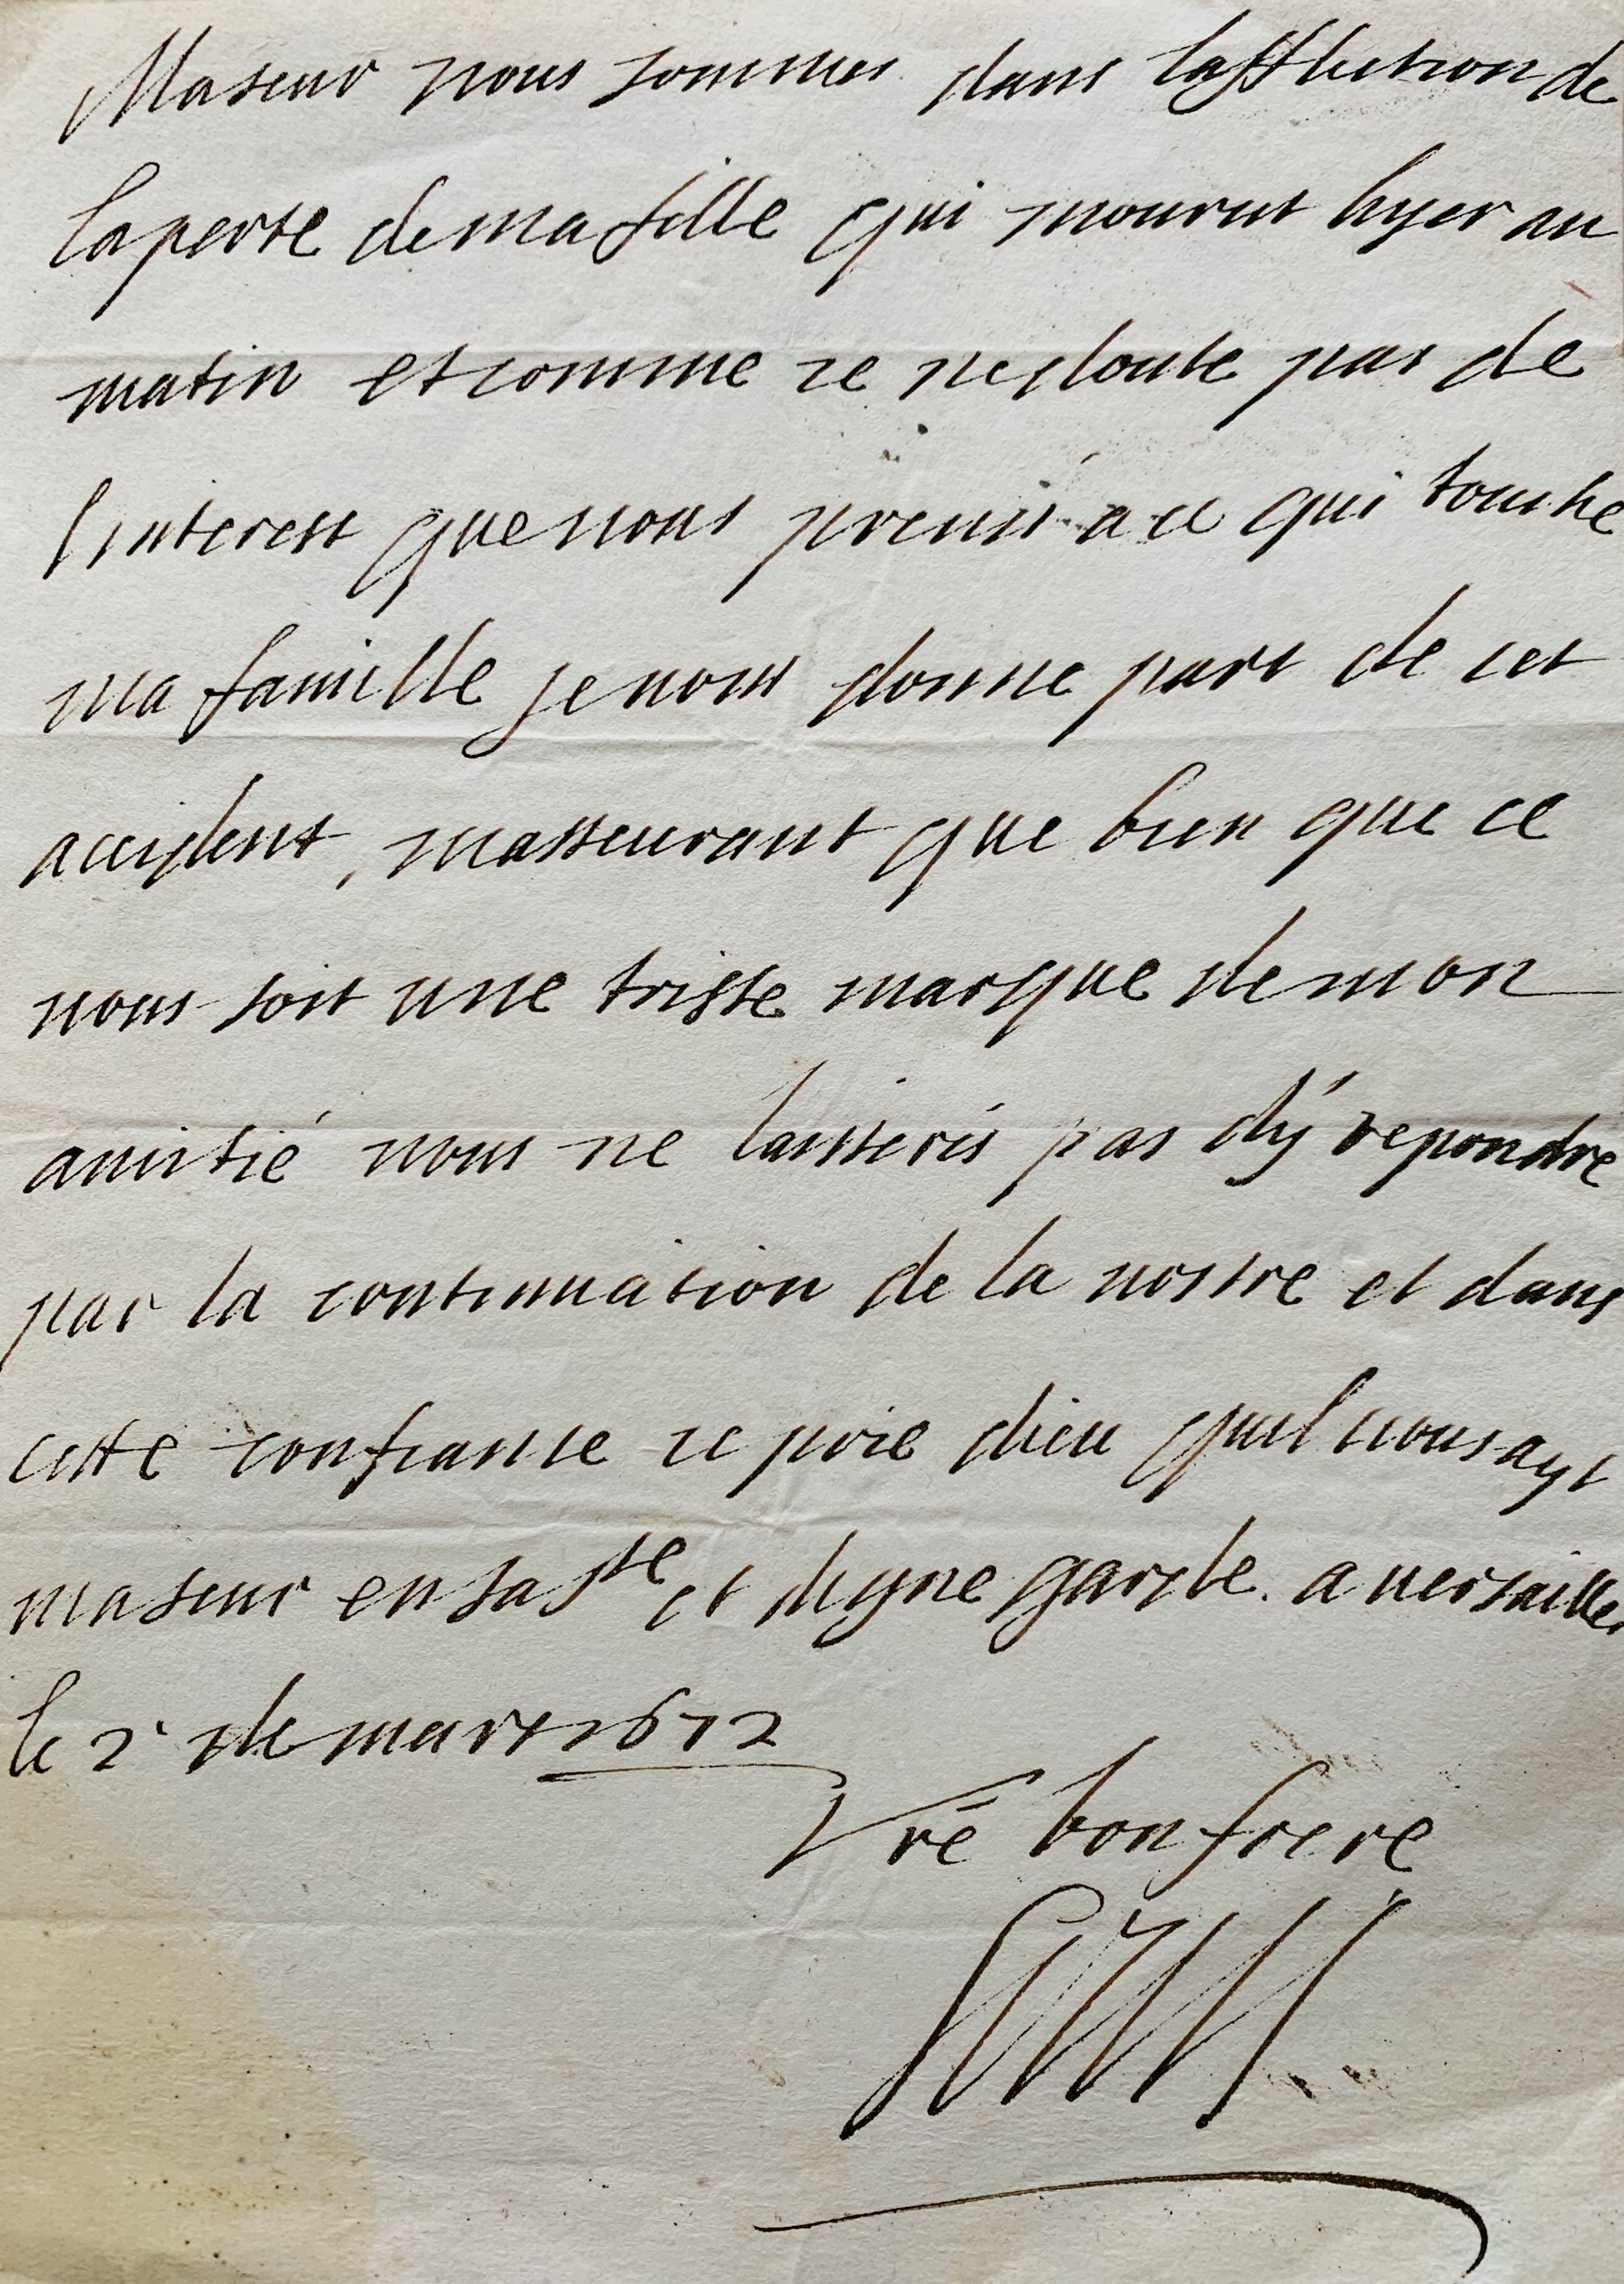 Maseur nous sommes dans laffliction de
la perte de ma fille qui mourut hyer au
matin et comme ie ne doute pas de
linterest que vous prenés a ce qui touche
ma famille je vous donne part de cet
accident, masseurant que bien que ce
vous soit une triste marque de mon
amitié vous ne laisserés pas dy repondre
par la continuation de la vostre et dans
cette confiance ie prie dieu quil vous ayt
maseur en sa ste et digne garde. a versailles
le 2 de mars 1672
Vre bon frere
Louis